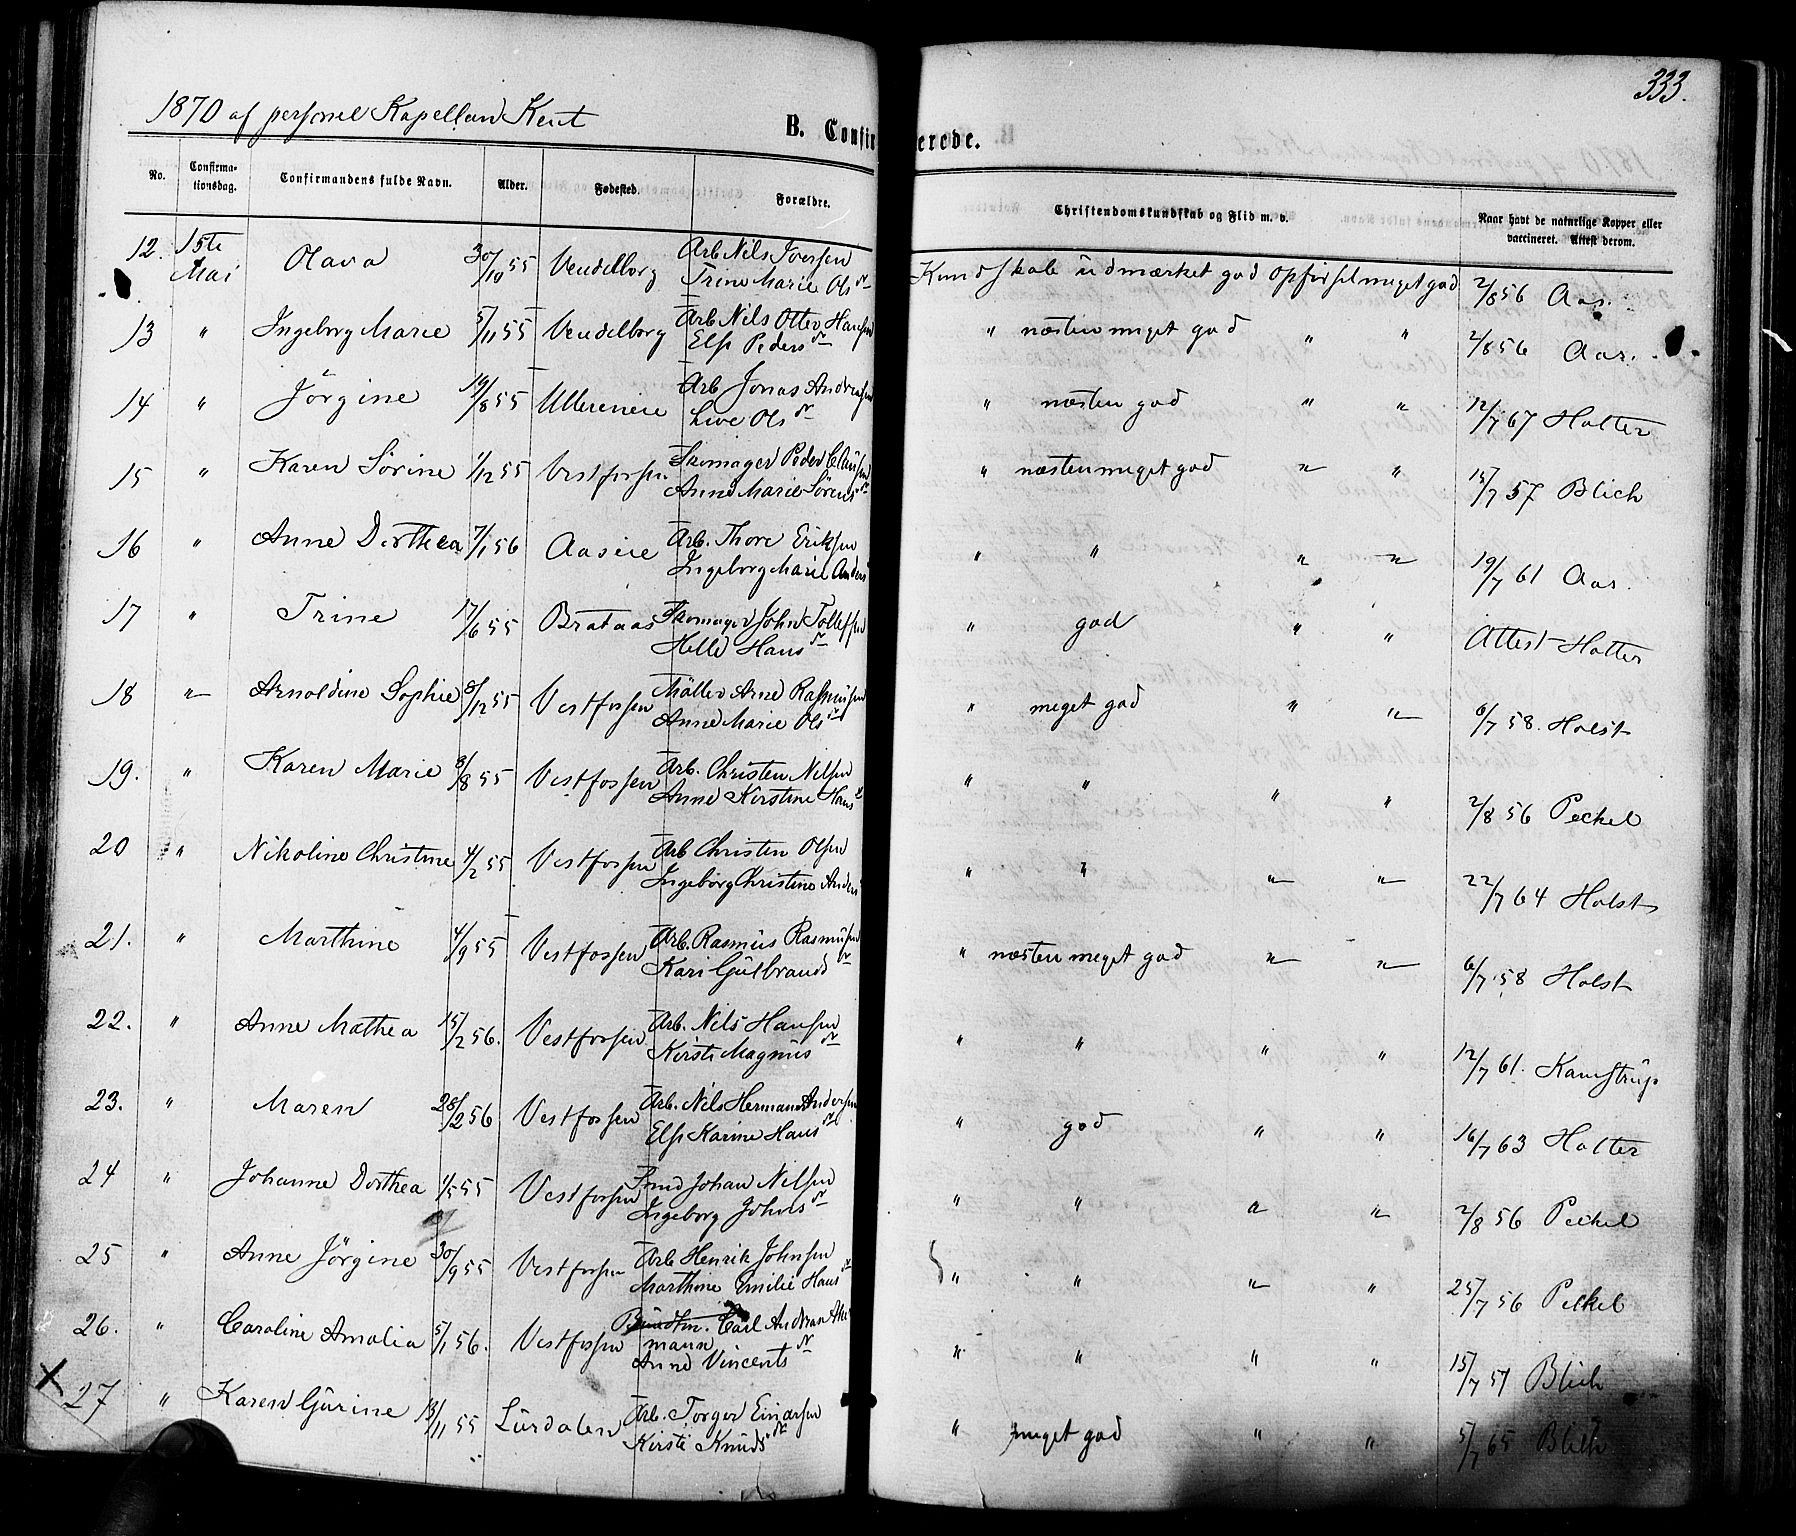 333.
1870 af personel Kapellan Kent
B. Confirmerede.
No. Confirmationsdag. Confirmandens fulde Navn. Alder. Fødested. Forældre. Christendomskundskab og Flid m. v. Naar havt de naturlige Kopper eller vaccineret. Attest derom.
12. 15te Mai Olava 30/10 55 Vendelborg Arb Nils Iversen Trine Marie Olsdr Kundskab udmærket god opførsel meget god 2/8 56 Aas.
13 " Ingeborg Marie 5/11 55 Vendelborg Arb Nils Otter Hansen Else Pedersdr " næsten meget god " " 2/8 56 Aas.
14 " Jörgine 19/8 55 Ullereneie Arb Jonas Andreasen Live Olsdr " næsten god " " 12/7 67 Holter
15 " Karen Sörine 1/12 55 Vestfossen Skomager Peder Clausen Anne Marie Sörensdr " næsten meget god " " 15/7 57 Blich
16 " Anne Dorthea 7/1 56 Aaseie Arb. Thore Eriksen Ingeborg Marie Anders " " " " 19/7 61 Aas.
17 " Trine 17/6 55 Brataas Skomager John Tollefsen Helle Hansdr " god " " Attest Holter
18 " Arnoldine Sophie 8/12 55 Vestfossen Möller Arne Rasmusen Anne Marie Olsdr " meget god " " 6/7 58. Holst
19. " Karen Marie 8/8 55 Vestfossen Arb. Christen Nilsen Anne Kirstine Hansdr " " " " 2/8 56 Peckel
20 " Nikoline Christine 4/2 55 Vestfossen Arb Christen Olsen Ingeborg Christine Anders " " " " 22/7 64 Holst
21. " Marthine 4/9 55 Vestfossen Arb. Rasmus Rasmusen Kari Gulbrandsdr " næsten meget god " " 6/7 58 Holst
22. " Anne Mathea 15/2 56. Vestfossen Arb. Nils Hansen Kirsti Magnusdr " " " " 12/7 61. Kamstrup
23. " Maren 28/2 56 Vestfossen Arb. Nils Herman Andersen Else Karine Hansdr " god " " 16/7 63 Holter
24 " Johanne Dorthea 1/5 55 Vestfossen Smed Johan Nilsen Ingeborg Johnsdr " " " " 2/8 56 Peckel
25 " Anne Jörgine 30/9 55 Vestfossen Arb Henrik Johnsen Marthine Emilie Hansdr " " " " 25/7 56 Peckel
26. " Caroline Amalia 5/1 56. Vestfossen Carl Andreas Akermann Anne Vincentsdr " " " " 15/7 57 Blich
27 " Karen Gurine 13/11 55 Lurdalen Arb. Torger Einarsen Kirsti Knudsdr " meget god " " 5/7 65 Blich